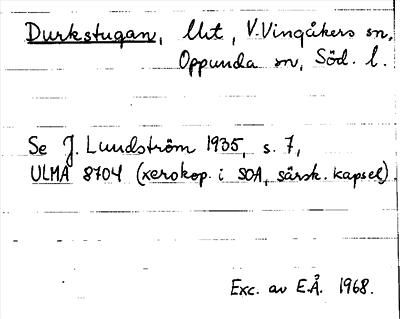 Durkstugan, Urt, V. Vingåkers sn,
Oppunda sn, Söd. l.
Se J. Lundström 1935, s. 7,
ULMA 8704 (xerokop. i SOA, särsk. kapsel).
Exc. av E.Å. 1968.